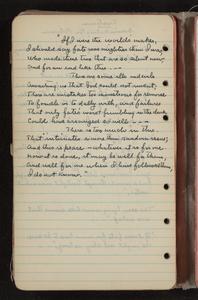 "If I were the world's maker,
I should say fate was mightier than I was
Who made these two that are so silent now
And for an end like this . . .
There are some ills and evils
Awaiting us that God could not invent;
There are mistakes too monstrous for remorse
To fondle or to dally with, and failures
That only fate's worst fumbling in the dark
Could have arranged so well . . .
There is too much in this
That intimates a more than random issue;
And this is peace — whatever it is for me.
Now it is done, it may be well for them,
And well for me when I have followed them,
I do not know."